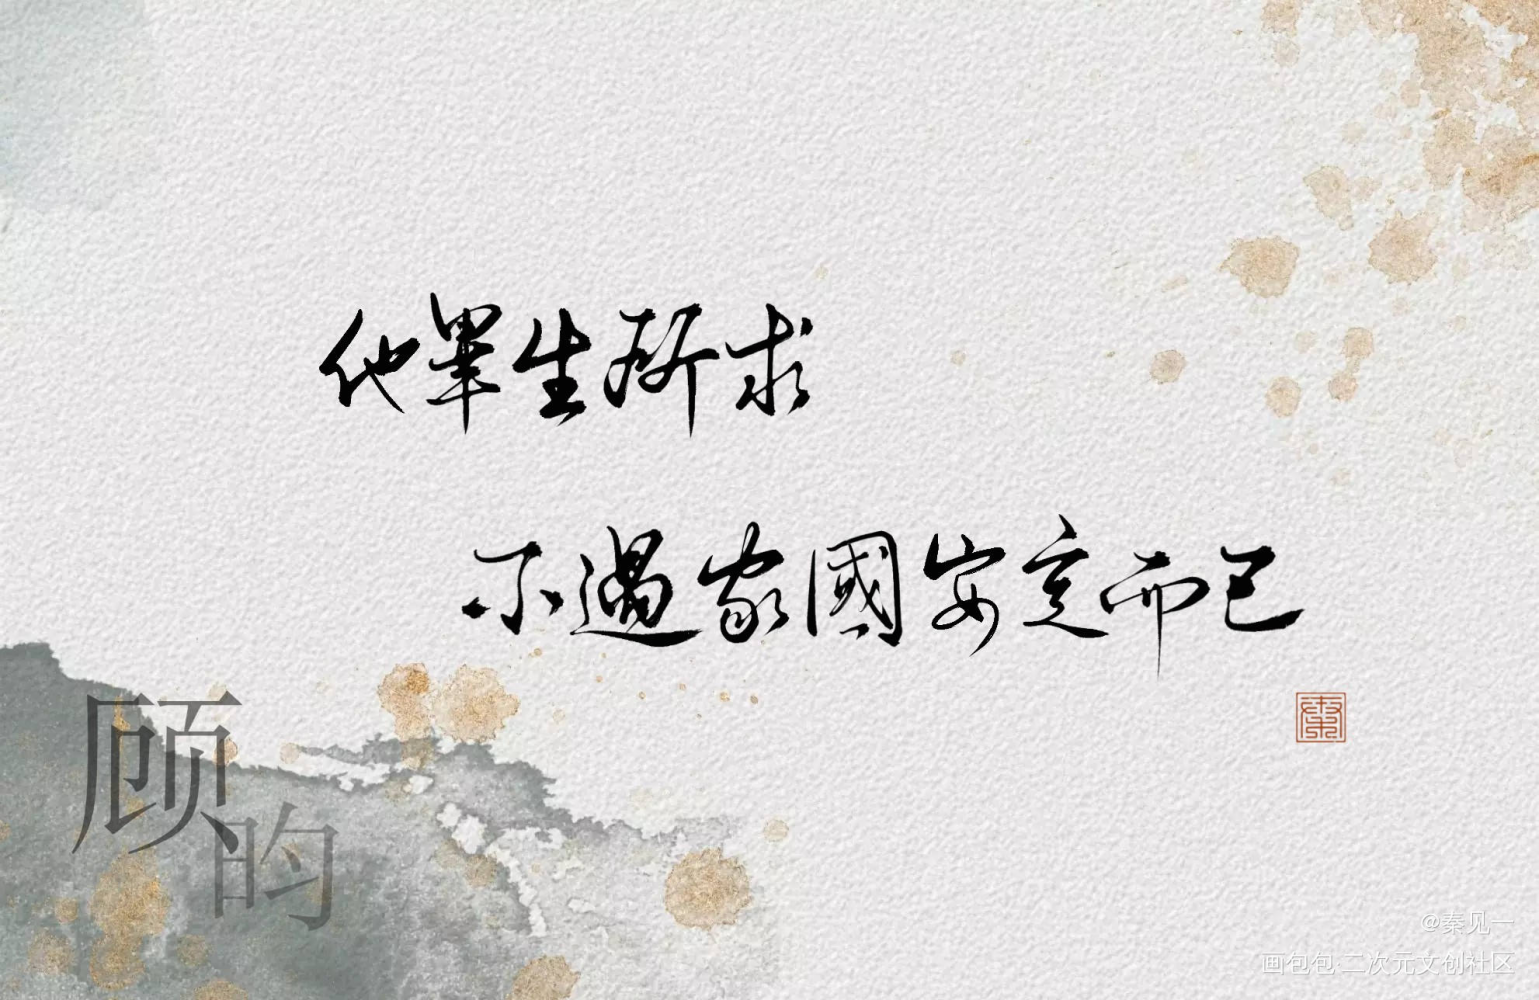 他畢生所求
不過家國安定而已
顾
昀
@秦见一
画包包·二次元文创社区